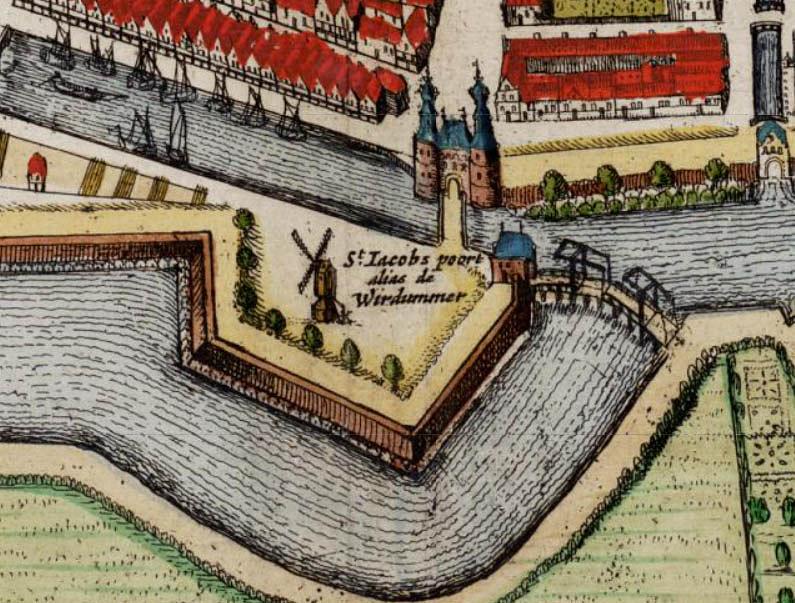 St. Iacobs poort
alias de
Wirdummer